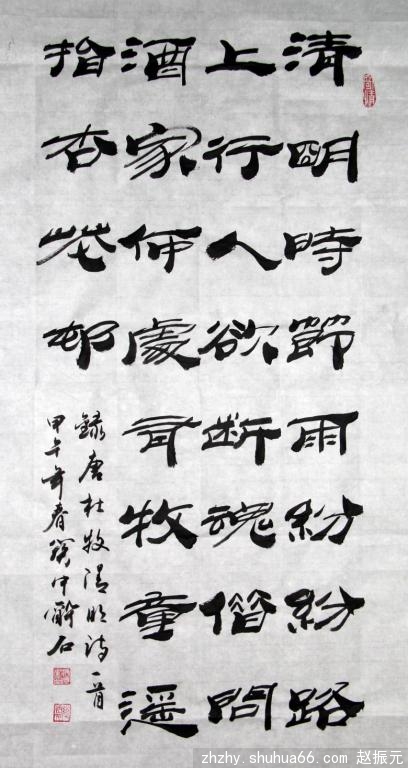 清明時節雨紛紛路
上行人欲断魂借問
酒家何處有牧童遥
指杏花邨
録唐杜牧清明詩一首
甲午年春中醉石
zhzhy.shuhua66.com 赵振元